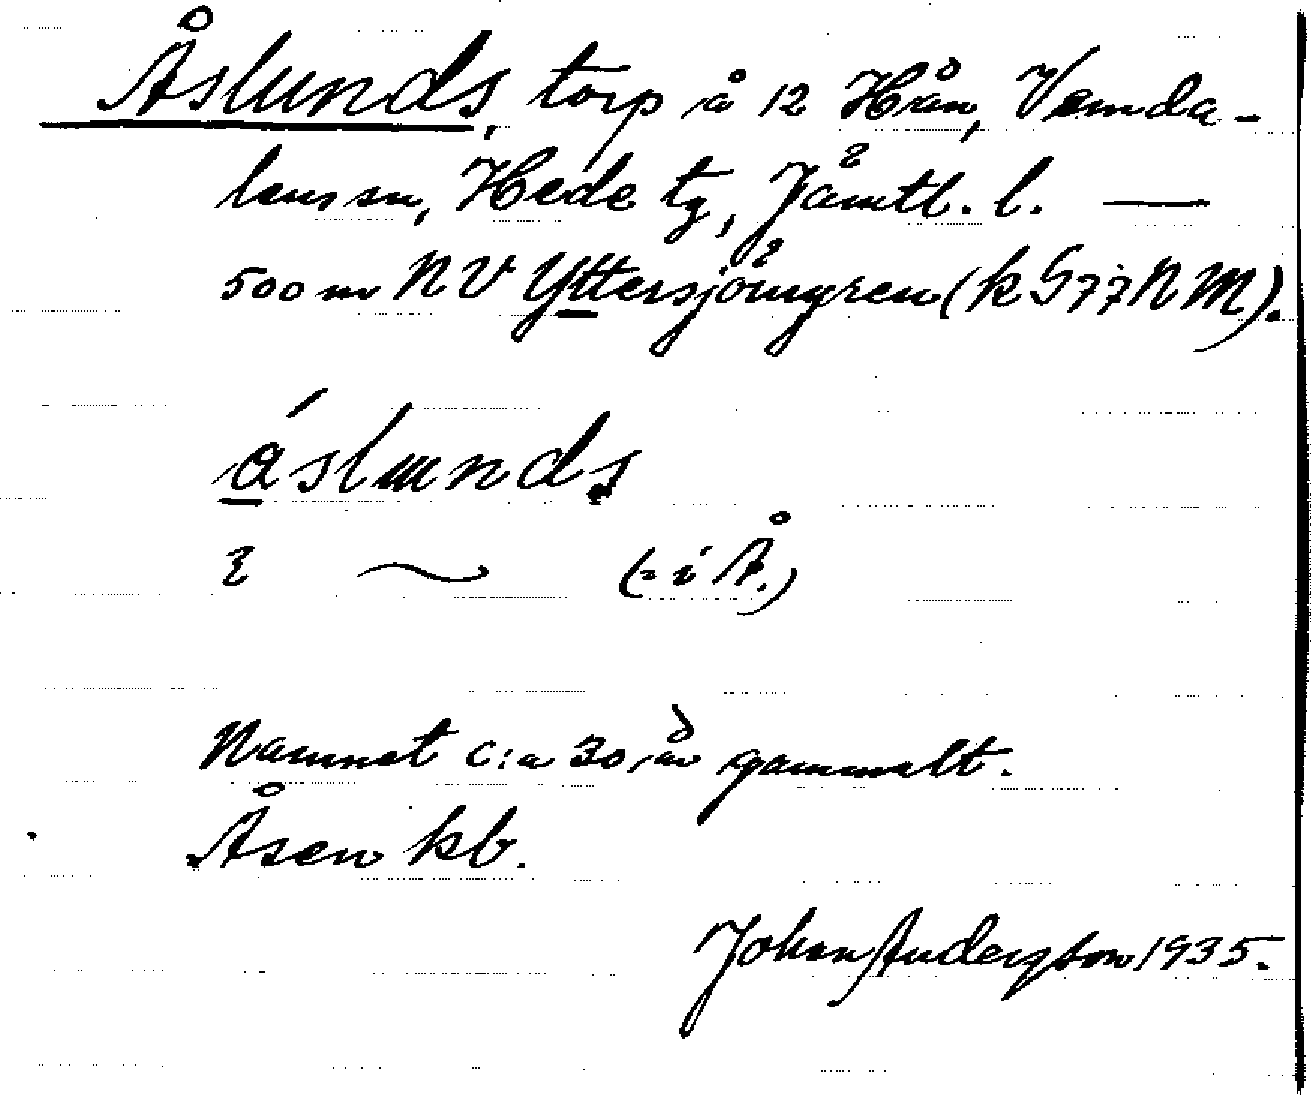 Åslunds, torp å 12 Hån, Vemda-
lens sn, Hede tg, Jämtl. l. —
500 m NV Yttersjömyren (k G77NM).
áslunds
i ~ (= i Å.)
Namnet c:a 30 år gammalt.
Åsen kb.
Johan Andersson 1935.